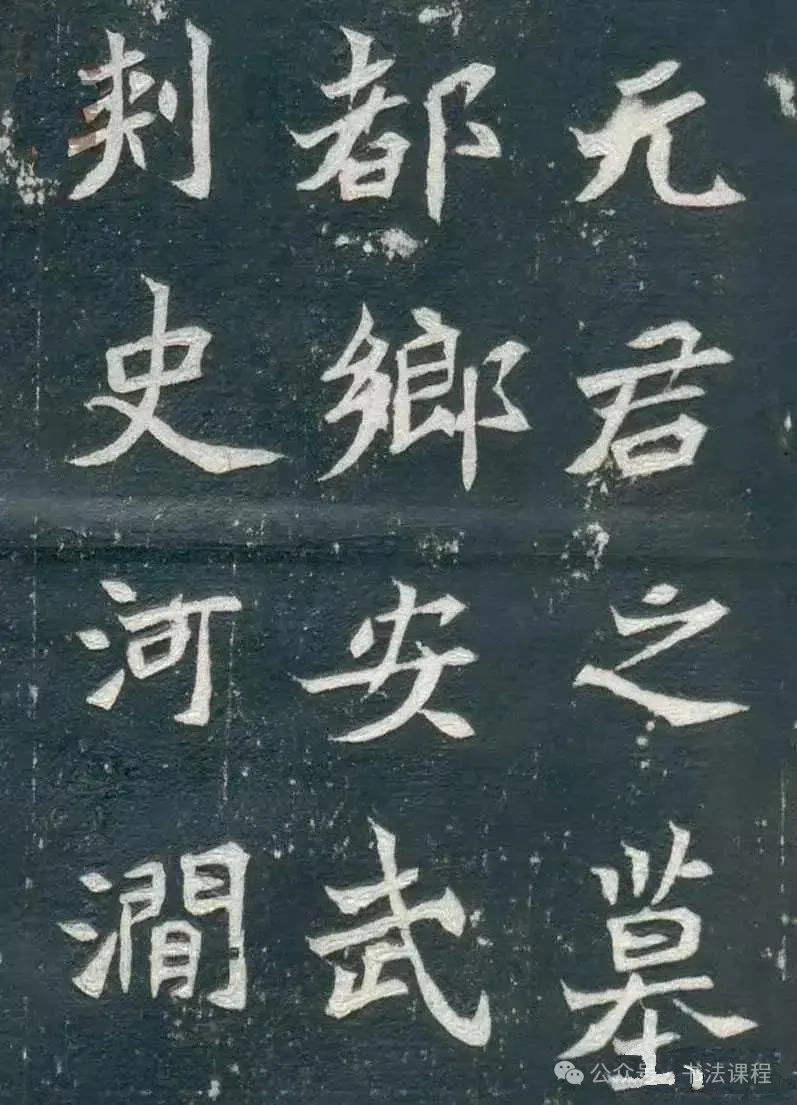 元君之墓
都鄉安武
刾史河澗
公众号·书法课程